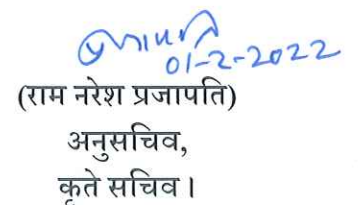 प्रजापति
01-2-2022
(राम नरेश प्रजापति)
अनुसचिव,
कृते सचिव।